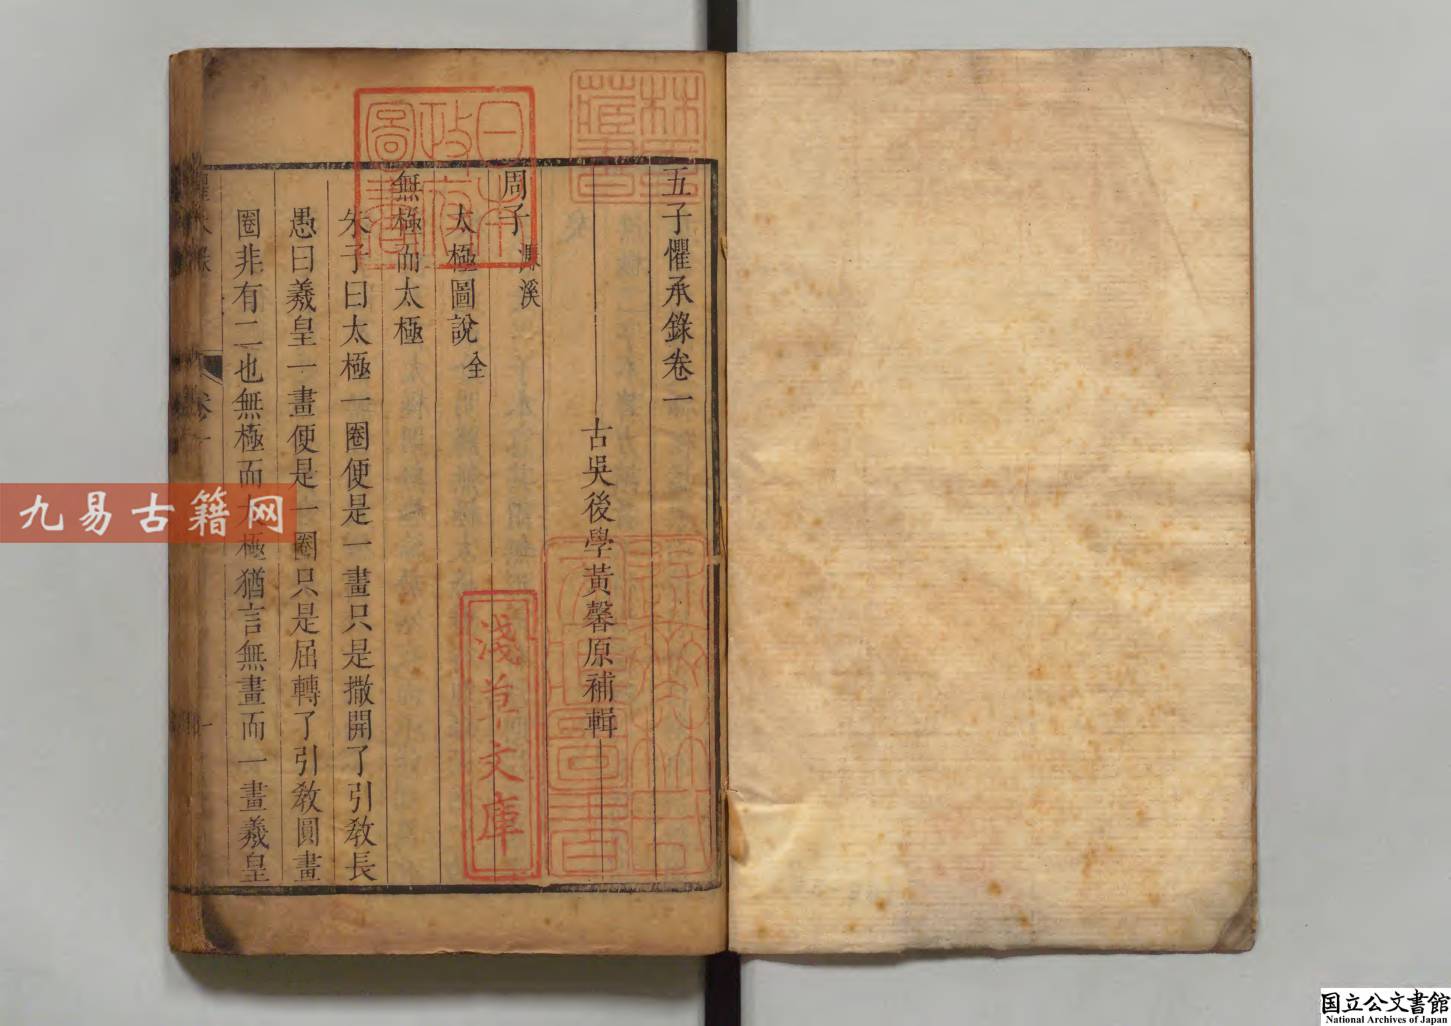 五子懼承錄卷一
古吳後學黃馨原補輯
周子濂溪
太極圖說全
無極而太極
朱子曰太極一圈便是一畫只是撒開了引教長
愚曰羲皇一畫便是一圈只是屈轉了引教圓畫
圈非有二也無極而太極猶言無畫而一畫羲皇
卷一
林氏藏書
日本政府圖書
淺草文庫
九易古籍网
国立公文書館
National Archives of Japan